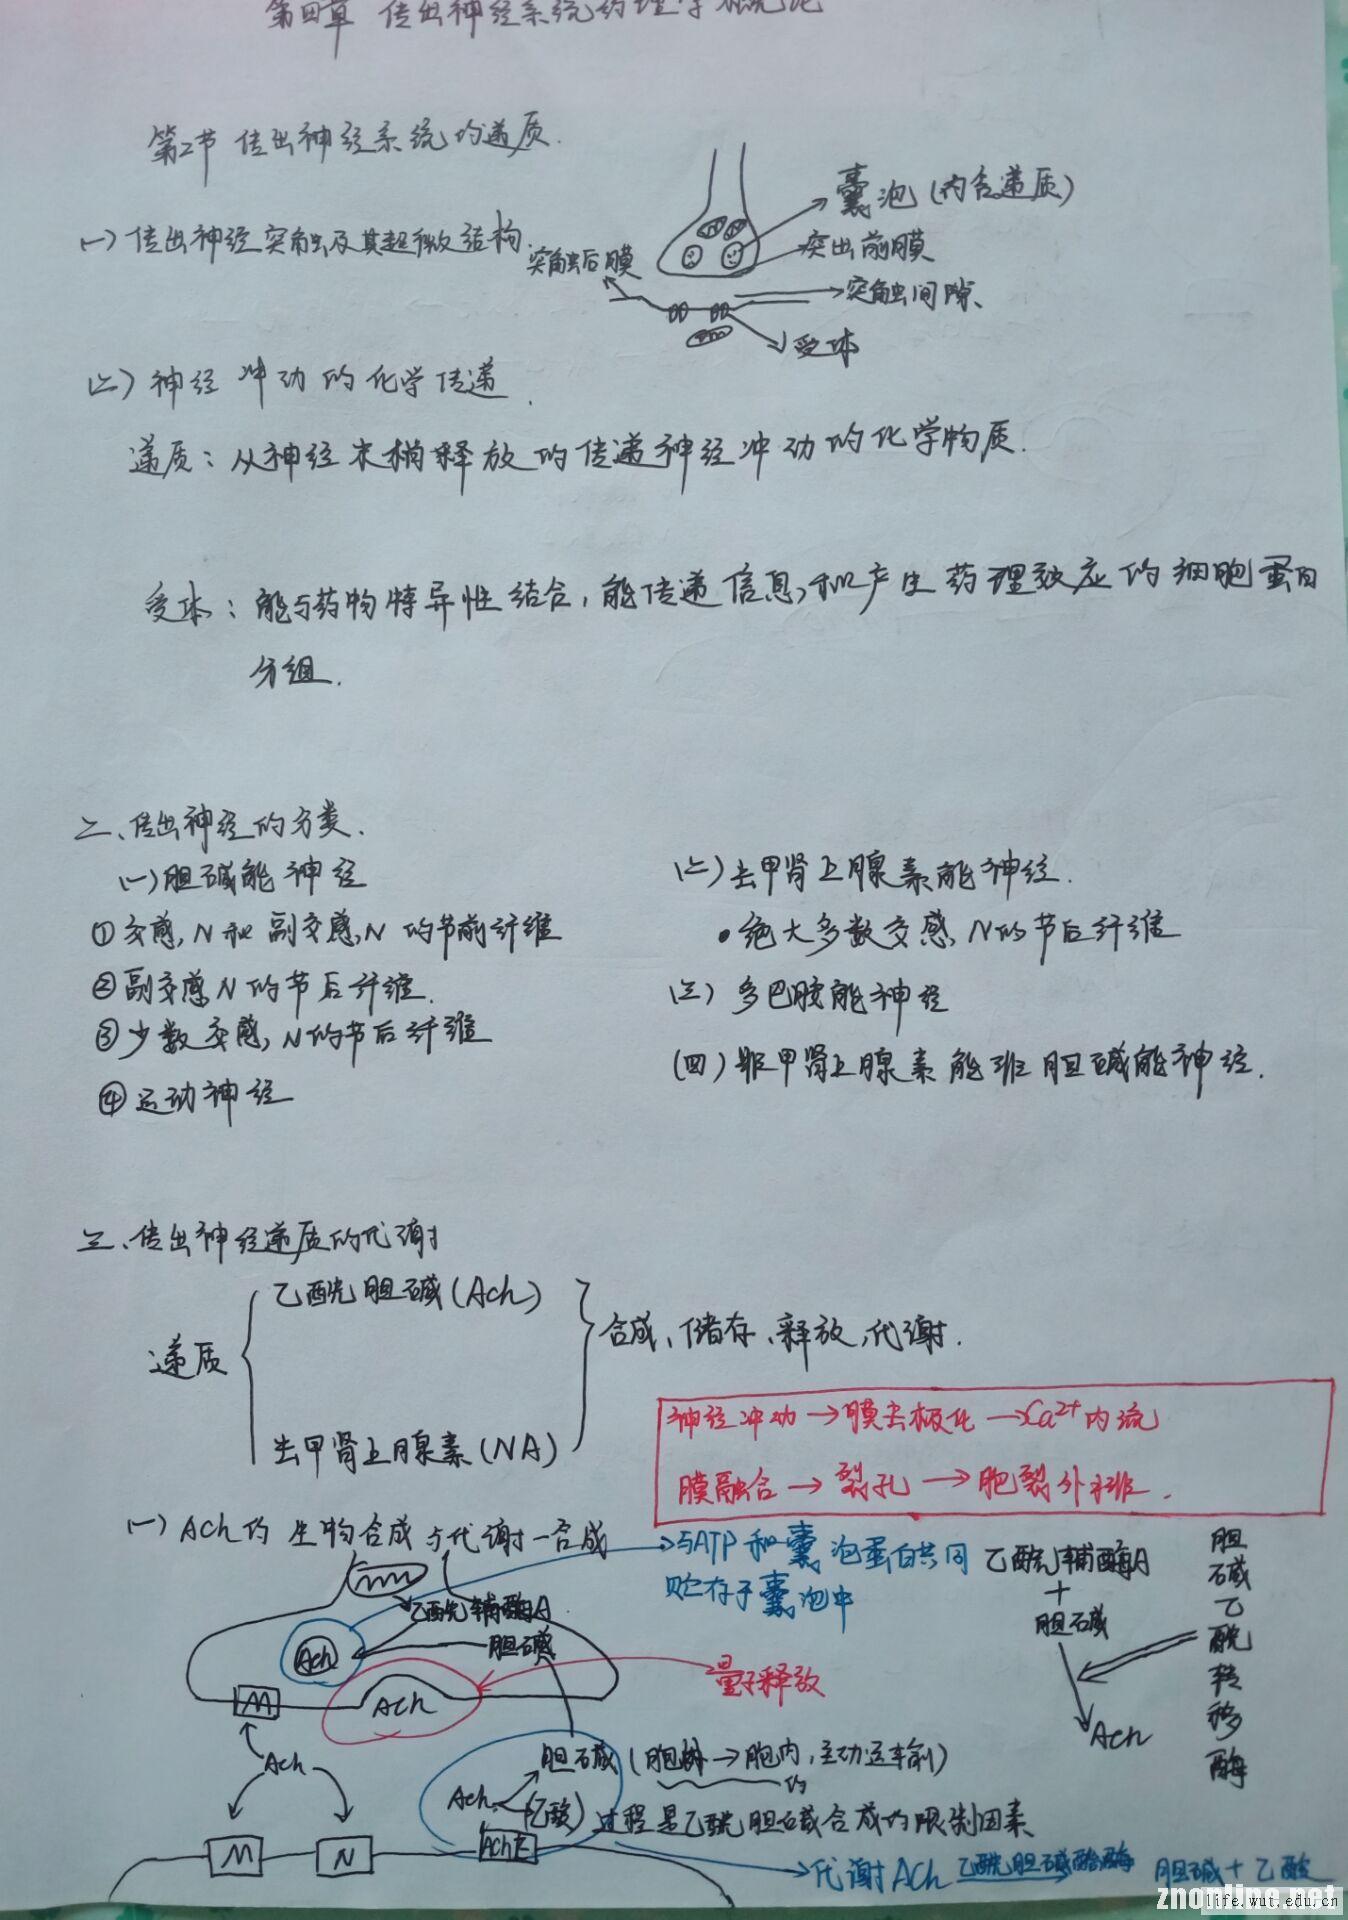 第四章 传出神经系统药理学概论
第2节 传出神经系统的递质.
(一)传出神经突触及其超微结构.
囊泡(内含递质)
突出前膜
突触后膜
突触间隙、
受体
(二)神经冲动的化学传递.
递质:从神经末梢释放的传递神经冲动的化学物质.
受体:能与药物特异性结合,能传递信息,和产生药理效应的细胞蛋白
分组.
二、传出神经的分类.
(一)胆碱能神经
①交感N和副交感N的节前纤维
②副交感N的节后纤维.
③少数交感N的节后纤维
④运动神经
(二)去甲肾上腺素能神经.
•绝大多数交感N的节后纤维
(三)多巴胺能神经
(四)非甲肾上腺素能非胆碱能神经.
三、传出神经递质的代谢
递质
乙酰胆碱(Ach)
去甲肾上腺素(NA)
合成、储存、释放,代谢.
神经冲动→膜去极化→Ca²⁺内流
膜融合→裂孔→胞裂外排.
(一)ACh的生物合成与代谢—合成
与ATP和囊泡蛋白共同
贮存于囊泡中
乙酰辅酶A
胆碱
Ach
Ach
量子释放
M
Ach
M
N
AchE
Ach
胆碱(胞外→胞内,主动运输)的
(乙酸)过程是乙酰胆碱合成的限制因素
代谢ACh 乙酰胆碱酯酶 胆碱+乙酸
乙酰辅酶A
+
胆碱
Ach
胆碱乙酰转移酶
znonline.net
life.wut.edu.cn